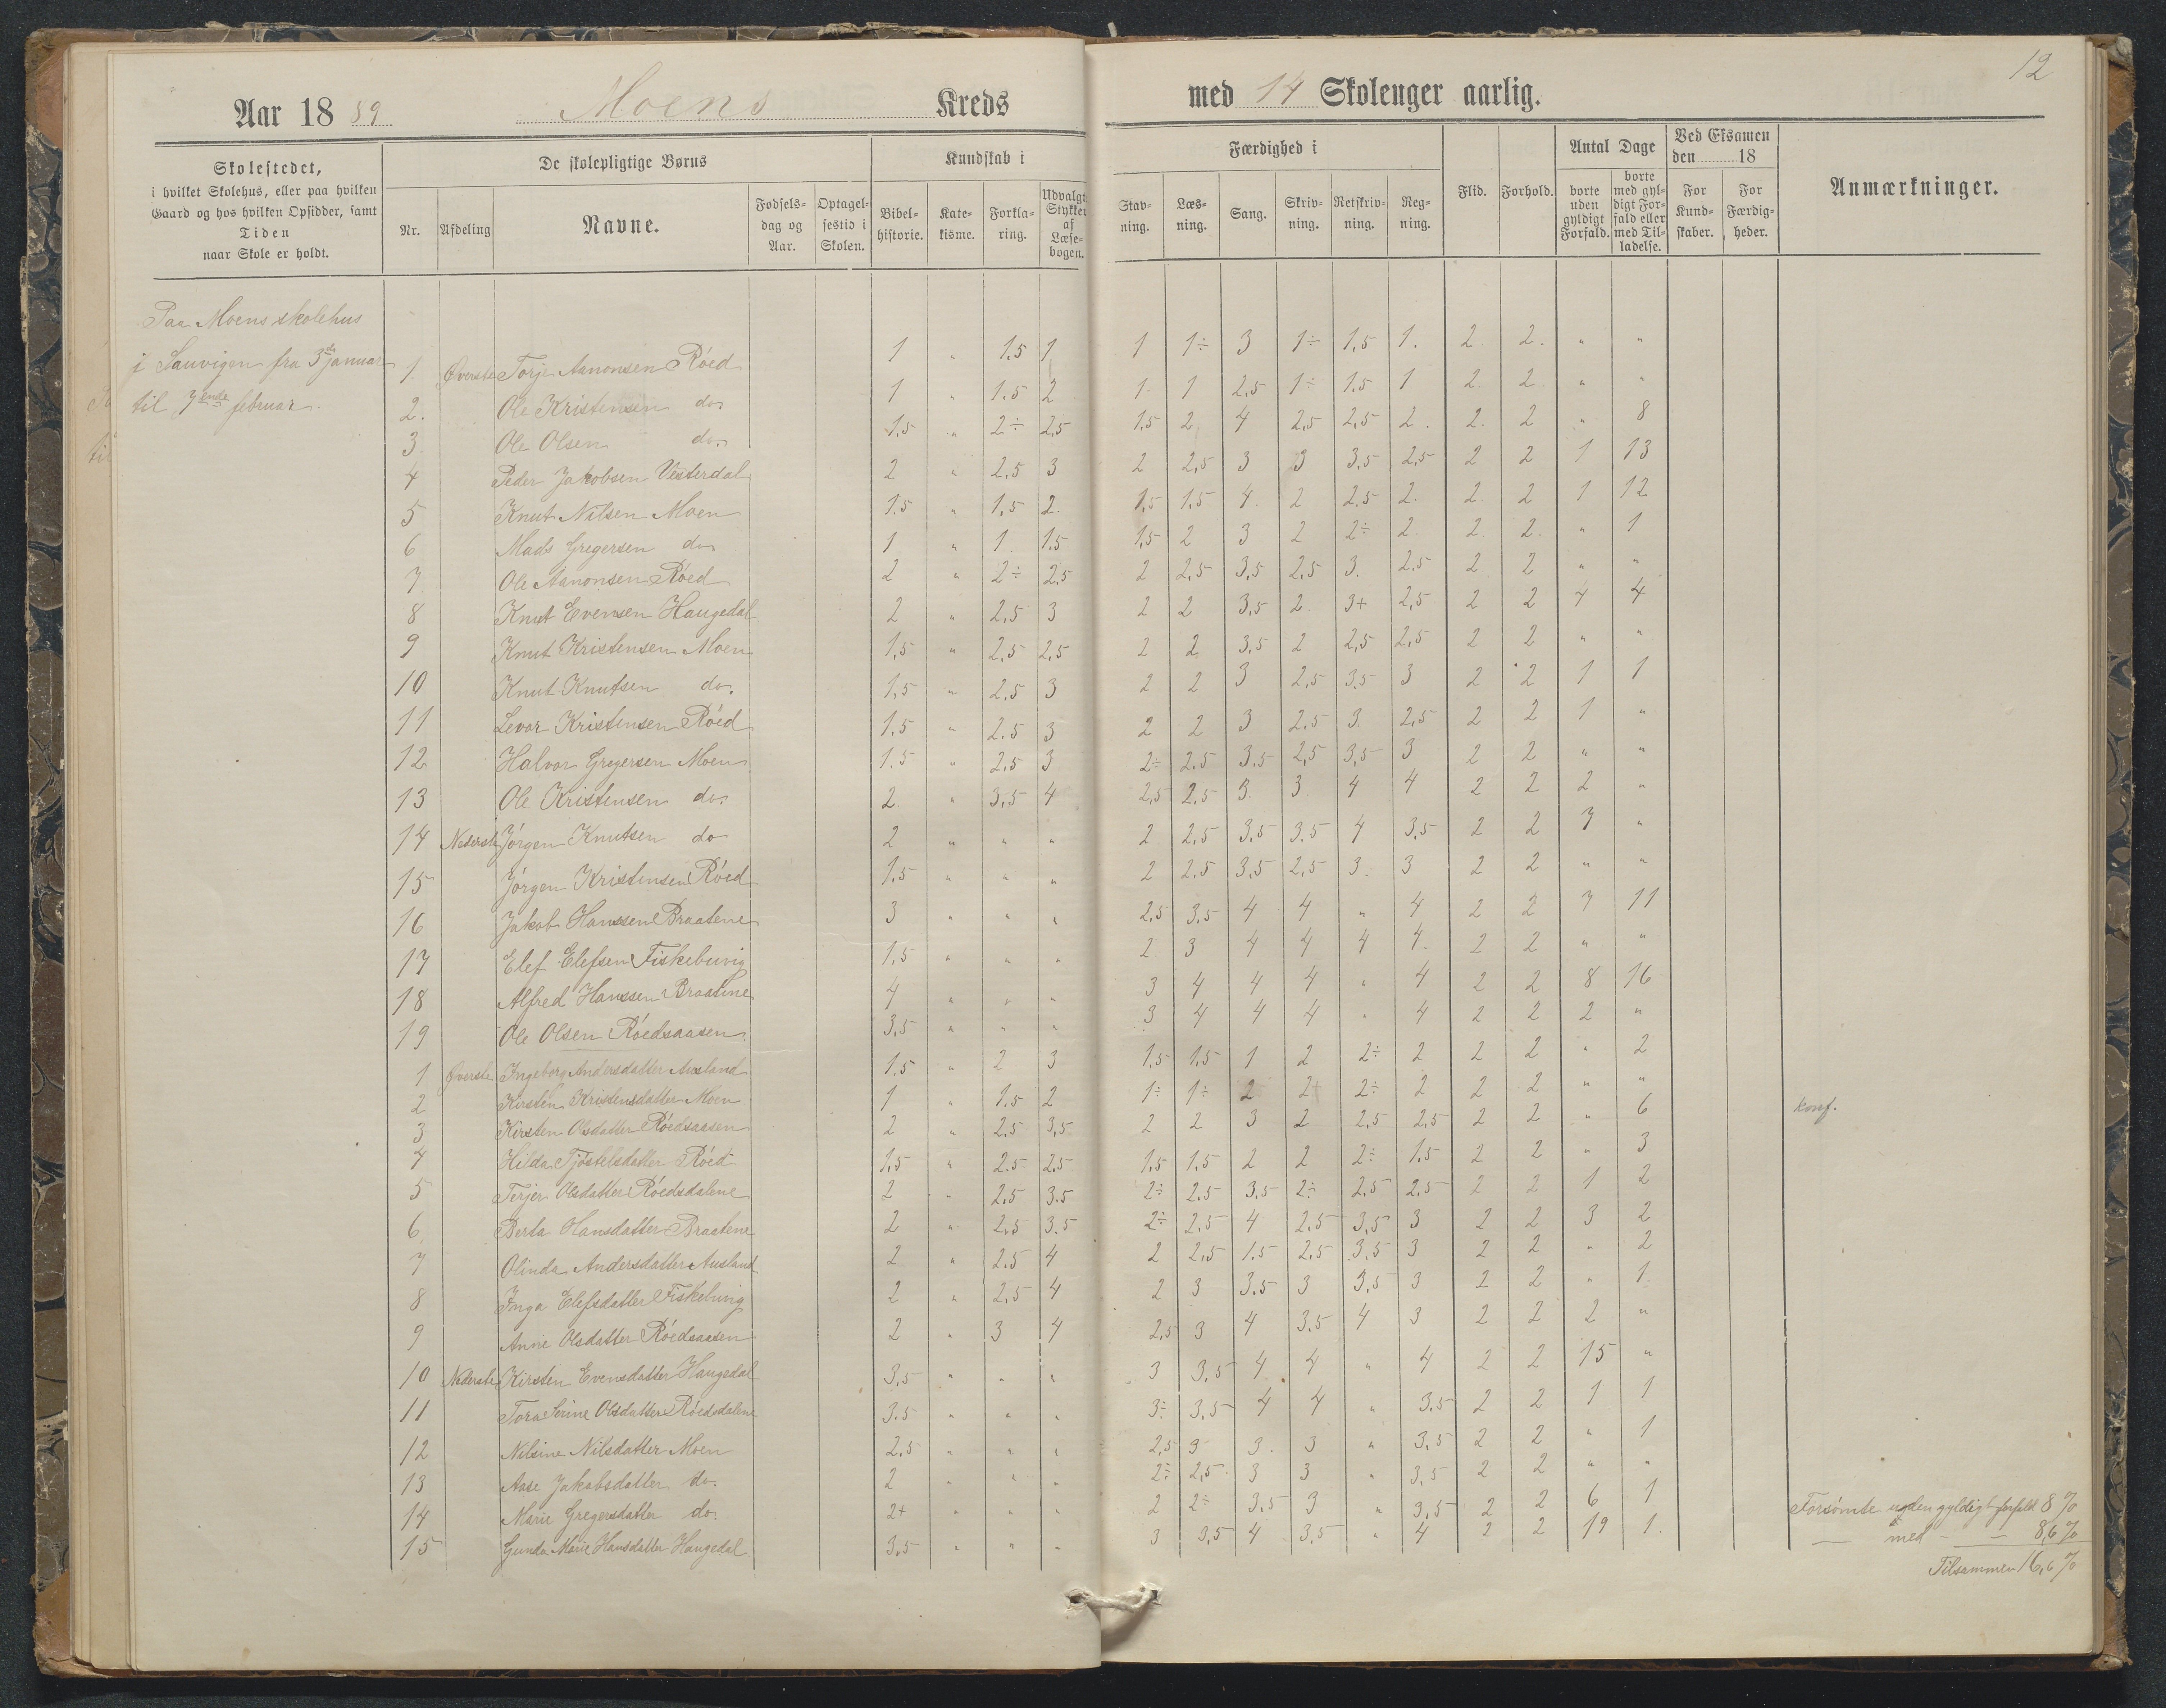 12
Aar 1889 Moens Kreds med 14 Skolenger aarlig.
Skolestedet, i hvilket Skolehus, eller paa hvilken Gaard og hos hvilken Opsidder, samt Tiden naar Skole er holdt.
De skolepligtige Børns
Nr. Afdeling Navne. Fødselsdag og Aar. Optagelsestid i Skolen.
Kundskab i
Bibelhistorie. Katekisme. Forklaring. Udvalgte Stykker af Læsebogen.
Færdighed i
Stavning. Læsning. Sang. Skrivning. Retskrivning. Regning.
Flid. Forhold.
Antal Dage
borte uden gyldigt Forfald. borte med gyldigt Forfald eller med Tilladelse.
Ved Eksamen den 18
For Kundskaber. For Færdigheder.
Anmærkninger.
Paa Moens skolehus
i Sauvigen fra 3die januar
til 7ende februar.
1 Øverste Torje Aanonsen Róed 1 " 1.5 1 1 1÷ 3 1÷ 1,5 1. 2 2. " "
2. Ole Kristensen do. 1 " 1.5 2 1. 1 2,5 1÷ 1.5 1 2. 2 " "
3. Ole Olsen do. 1,5 " 2÷ 2,5 1,5 2 4 2,5 2,5 2. 2. 2 " 8
4 Peder Jakobsen Vesterdal 2 " 2,5 3 2 2,5 3 3 3,5 2,5 2 2 1 13
5 Knut Nilsen Moen 1.5 " 1,5 2. 1,5 1.5 4. 2 2.5 2. 2. 2 1 12
6 Mads Gregersen do. 1 " 1. 1.5 1,5 2 3 2 2÷ 2. 2. 2. " 1
7 Ole Aanonsen Róed 2 " 2÷ 2,5 2 2,5 3,5 2,5 3. 2.5 2 2 " "
8 Knut Evensen Haugedal 2 " 2,5 3 2 2 3,5 2 3+ 2,5 2 2 4 4
9 Knut Kristensen Moen 1,5 " 2,5 2,5 2 2 3,5 2 2,5 2,5 2 2 " "
10 Knut Knutsen do. 1,5 " 2,5 3 2 2 3 2,5 3,5 3 2 2 1 1
11 Levor Kristensen Róed 1.5 " 2.5 3 2 2 3 2,5 3. 2,5 2 2 1 "
12 Halvor Gregersen Moen 1.5 " 2.5 3 2÷ 2.5 3.5 2,5 3,5 3 2 2 " "
13 Ole Kristensen do. 2 " 3,5 4 2,5 2,5 3. 3 4 4 2 2 2 "
14 Nederste Jörgen Knutsen do 2 " " " 2 2,5 3,5 3,5 4 3,5 2 2 7 "
15 Jörgen Kristensen Róed 1.5 " " " 2 2,5 3,5 2,5 3. 3 2 2 " "
16 Jakob Hanssen Braatene 3 " " " 2,5 3,5 4 4 " 4 2 2 7 11
17 Elef Elefsen Fiskebuvig 1,5 " " " 2 3 4 4 4 4. 2 2 " "
18 Alfred Hanssen Braatene 4 " " " 3 4 4 4 " 4 2 2 8 16
19 Ole Olsen Róedsaasen 3,5 " " " 3 4 4 4 " 4 2 2 2 "
1 Øverste Ingeborg Andersdatter Ausland 1.5 " 2 3 1,5 1,5 1 2 2÷ 2 2 2 " 2
2 Kirsten Kristensdatter Moen 1 " 1.5 2 1÷ 1÷ 2 2+ 2÷ 2 2 2 " "
3 Kirsten Olsdatter Róedsaasen 2 " 2.5 3,5 2 2 3 2 2,5 2,5 2 2 " 6 konf.
4 Hilda Tjöstelsdatter Róed 1,5 " 2.5 2.5 1,5 1,5 2 2 2÷ 1.5 2 2 " 3
5 Terjer Olsdatter Róedsdalene 2 " 2,5 3.5 2÷ 2.5 3.5 2÷ 2,5 2,5 2 2 1 2
6 Berta Hansdatter Braatene 2 " 2,5 3.5 2÷ 2,5 4 2,5 3,5 3 2 2 3 2
7 Olinda Andersdatter Ausland 2 " 2.5 4 2 2,5 1.5 2,5 3,5 3 2 2 " 2
8 Inga Elefsdatter Fiskebuvig 2 " 2,5 4 2 3 3.5 3 3,5 3 2 2 " 1
9 Anne Olsdatter Róedsaasen 2 " 3 4 2,5 3 4 3.5 4 3 2 2 2 "
10 Nederste Kirsten Evensdatter Haugedal 3,5 " " " 3 3,5 4 4 " 4 2 2 15 "
11 Tora Serine Olsdatter Róedsdalene 3.5 " " " 3÷ 3,5 4 4 " 3,5 2 2 1 1
12 Nilsine Nilsdatter Moen 2,5 " " " 2,5 3 3. 3 " 3,5 2 2 " 1
13 Aase Jakobsdatter do. 2 " " " 2÷ 2,5 3 3 " 3,5 2 2 " "
14 Marie Gregersdatter do. 2+ " " " 2 2÷ 3,5 3 " 3,5 2 2 6 1
15 Gunda Marie Hansdatter Haugedal 3,5 " " " 3 3,5 4 3,5 " 4 2 2 19 1.
Forsömte uden gyldigt forfald 8 %
— med - — 8,6 %
Tilsammen 16,6 %